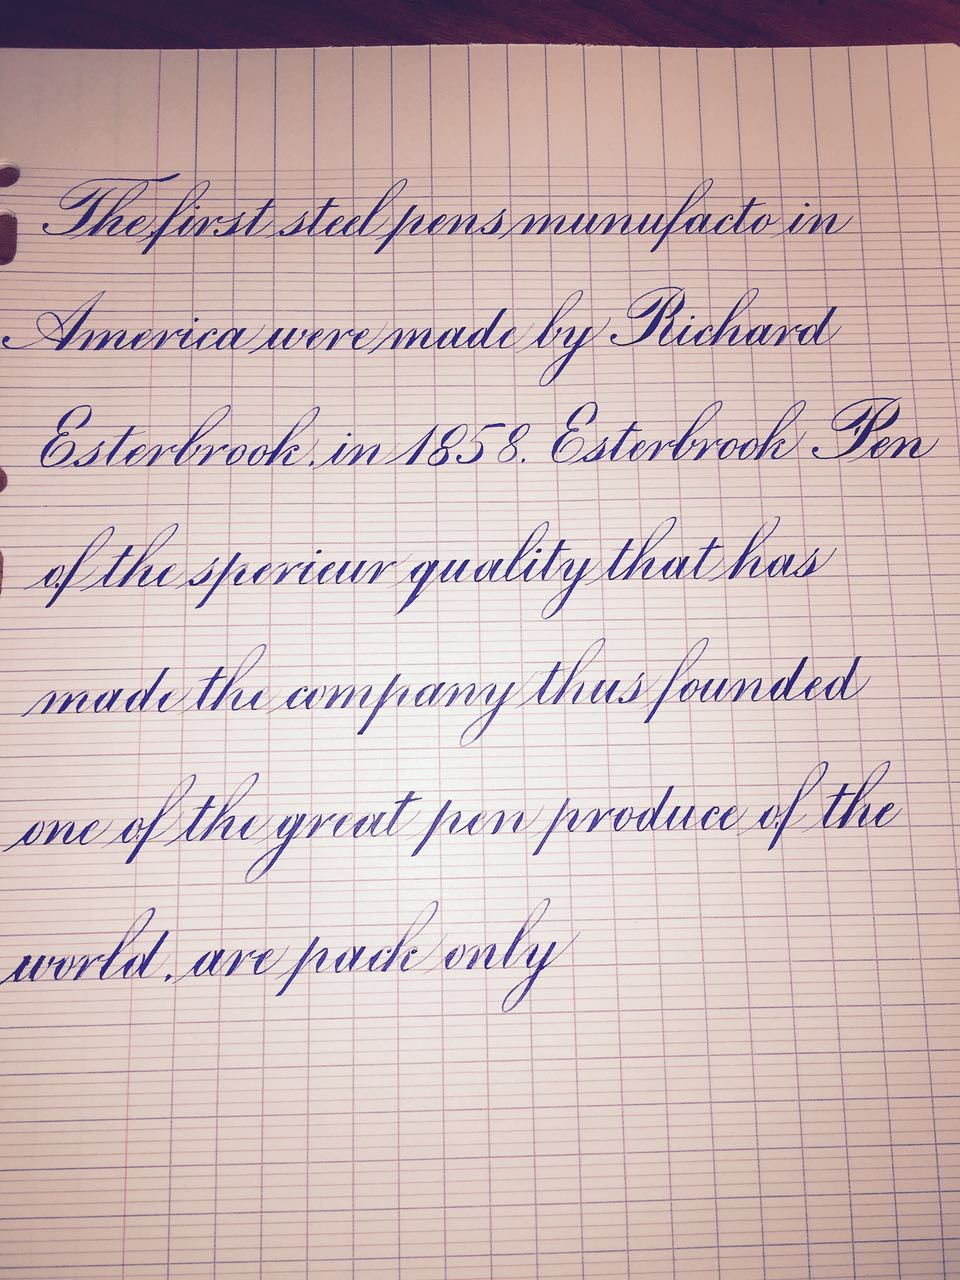 The first steel pens munufacto in
America were made by Richard
Esterbrook. in 1858. Esterbrook Pen
of the sperieur quality that has
made the company thus founded
one of the great pen produce of the
world. are pack only